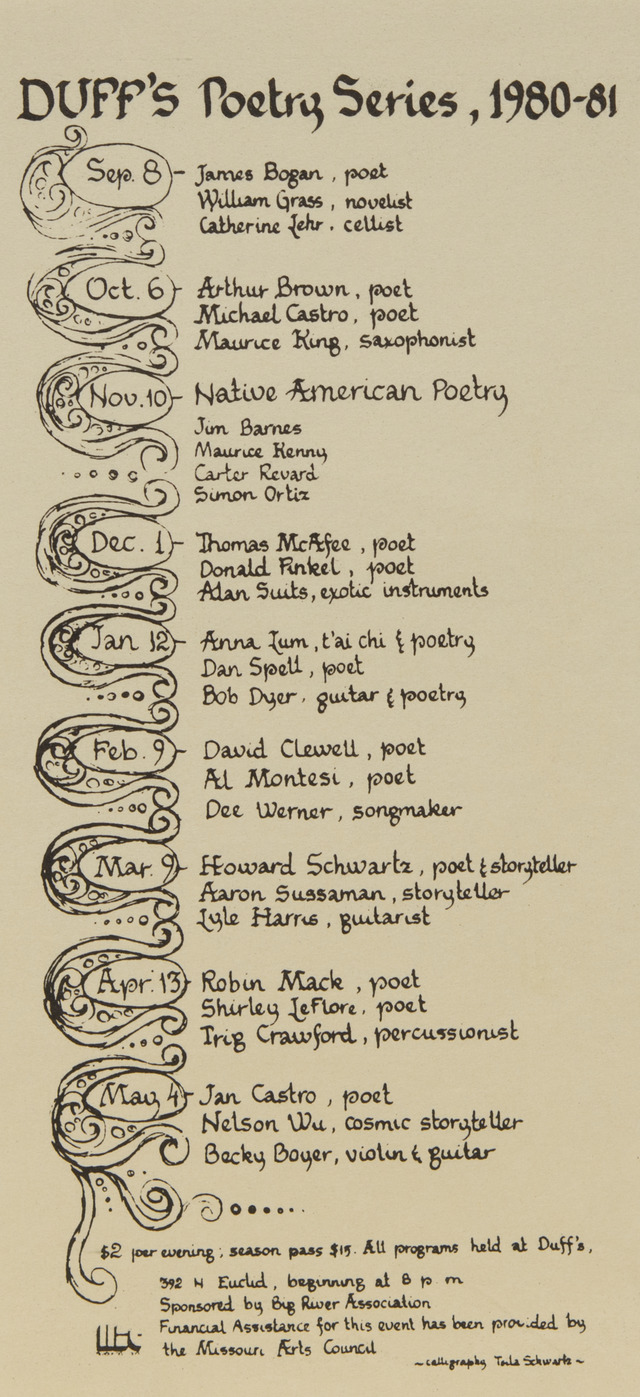 DUFF'S Poetry Series, 1980-81
Sep. 8 - James Bogan, poet
William Grass, novelist
Catherine Lehr. cellist
Oct. 6 - Arthur Brown, poet
Michael Castro, poet
Maurice King, saxophonist
Nov. 10 - Native American Poetry
Jim Barnes
Maurice Kenny
Carter Revard
Simon Ortiz
Dec. 1 - Thomas McAfee, poet
Donald Finkel, poet
Alan Suits, exotic instruments
Jan 12 - Anna Lum, t'ai chi & poetry
Dan Spell, poet
Bob Dyer. guitar & poetry
Feb. 9 - David Clewell, poet
Al Montesi, poet
Dee Werner, songmaker
Mar. 9 - Howard Schwartz, poet & storyteller
Aaron Sussaman, storyteller
Lyle Harris, guitarist
Apr. 13 - Robin Mack, poet
Shirley LeFlore, poet
Trig Crawford, percussionist
May 4 - Jan Castro, poet
Nelson Wu, cosmic storyteller
Becky Boyer, violin & guitar
$2 per evening; season pass $15. All programs held at Duff's,
392 N Euclid, beginning at 8 p m
Sponsored by Big River Association
Financial Assistance for this event has been provided by
the Missouri Arts Council
~calligraphy Tsila Schwartz~